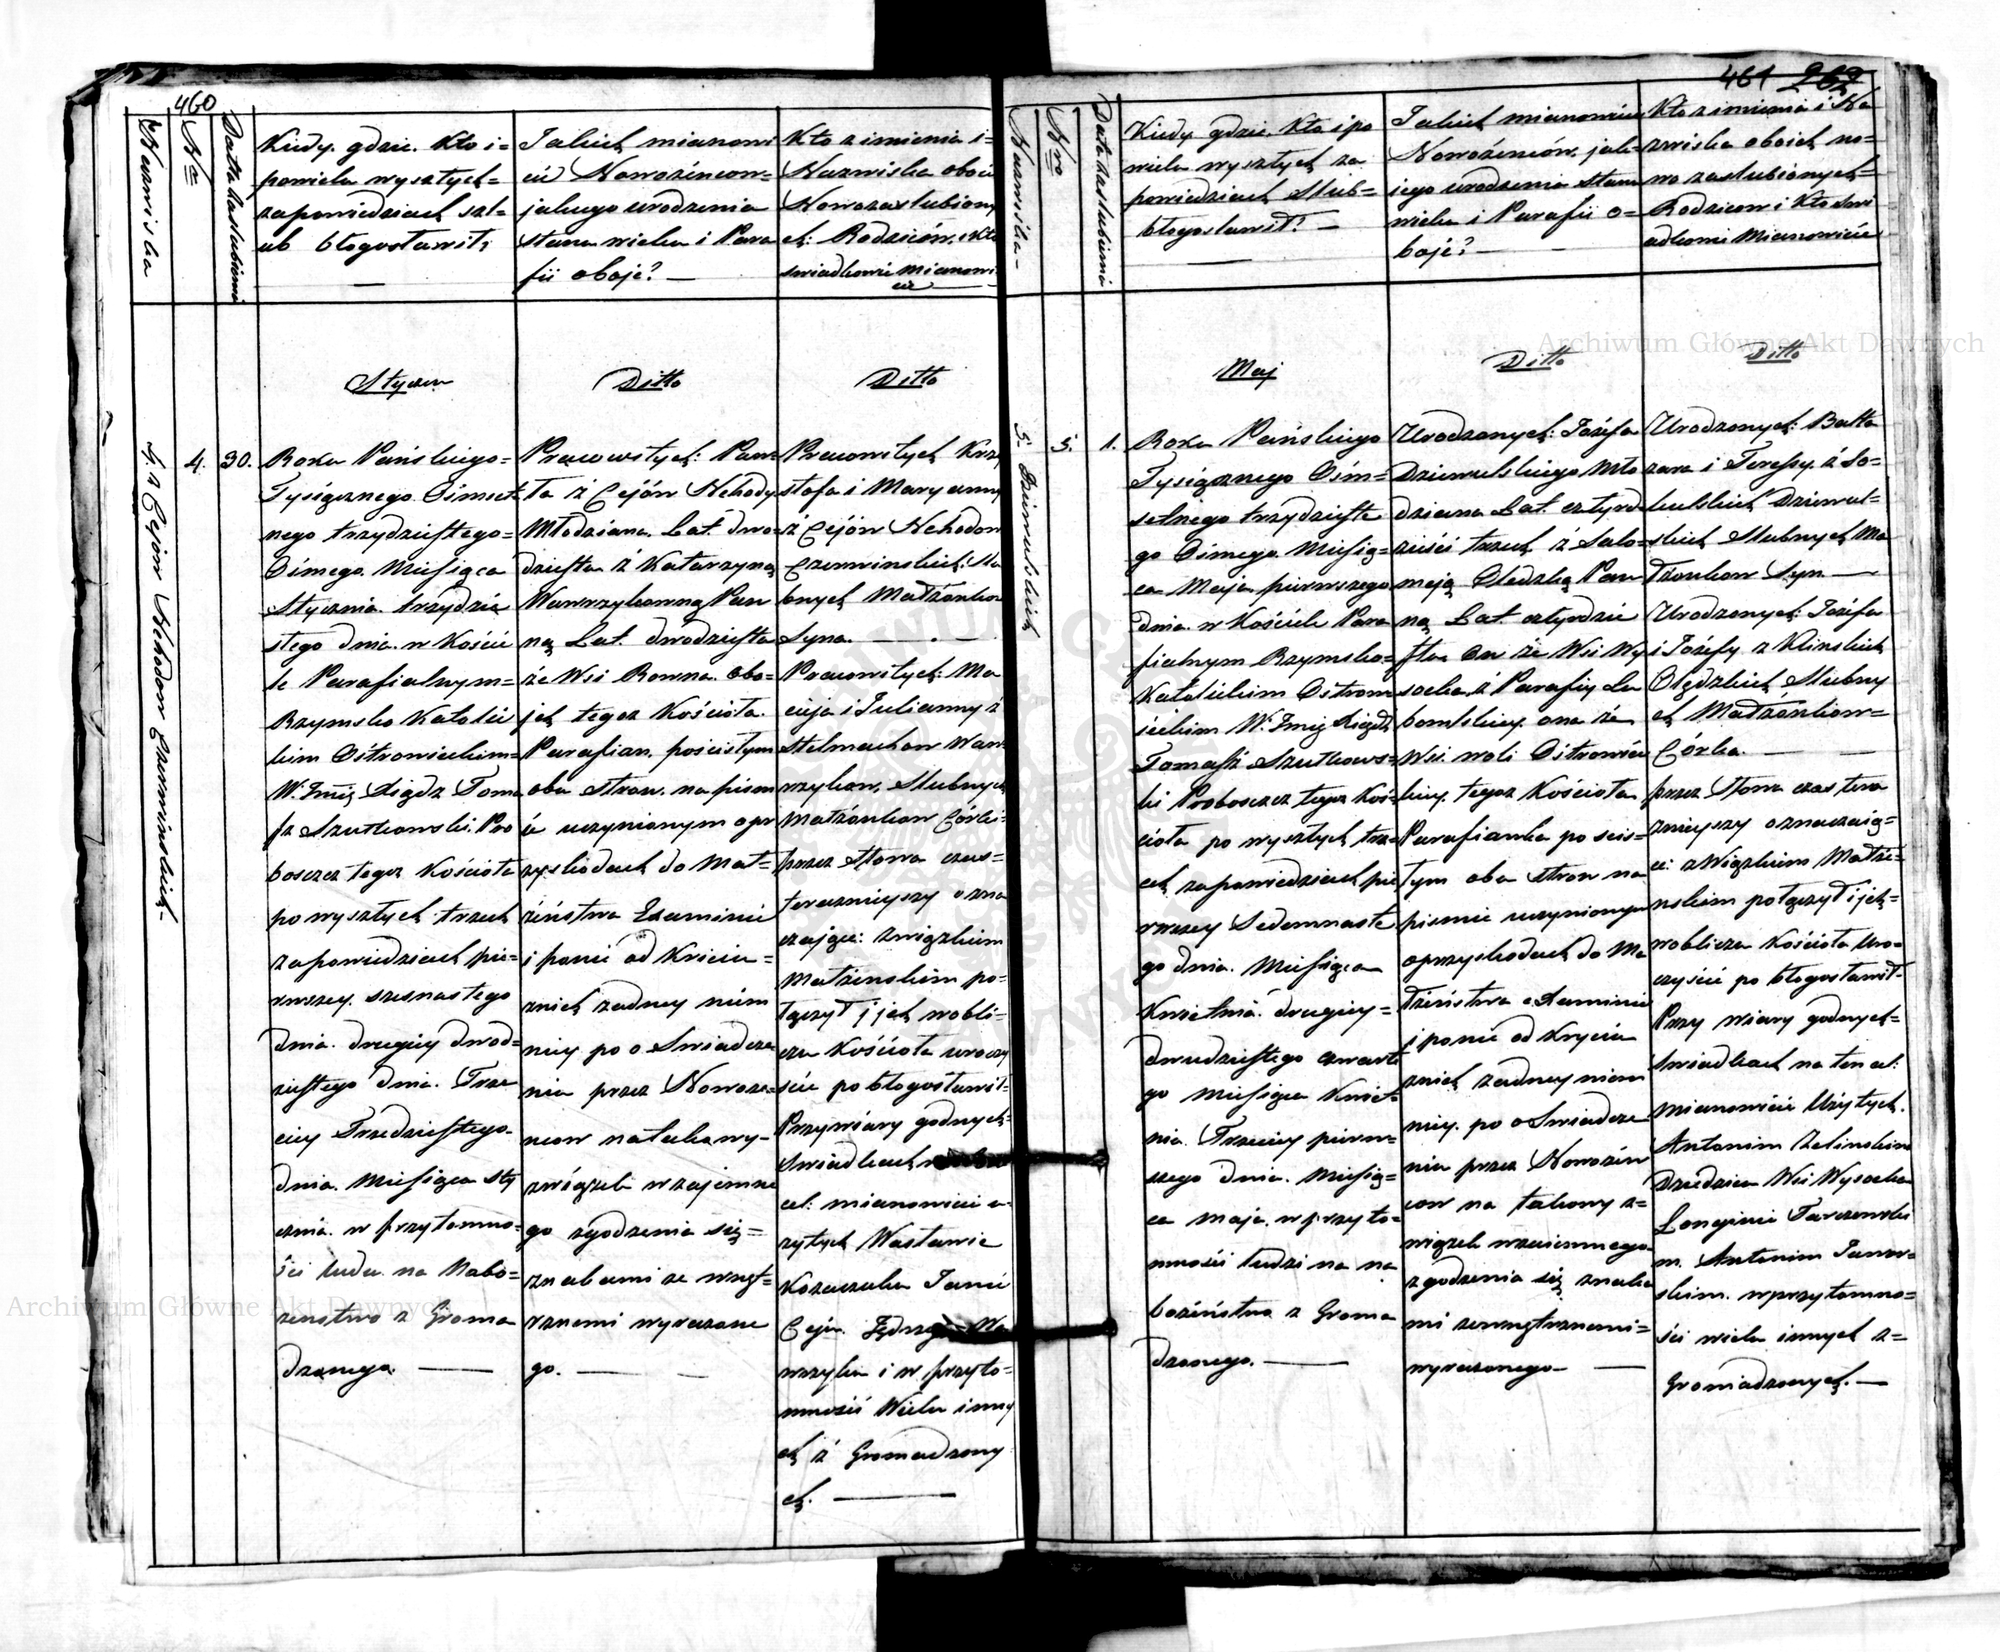 460
Nazwiska
Nro
Data Zaslubienia
Kiedy. gdzie. Kto i=
powielu wyszłych=
zapowiedziach szl=
ub błogosławił?
Jakich mianowi
cie Nowożencow=
jakiego urodzenia
stanu wieku i Para
fii oboje? —
Kto z imienia i=
Nazwiska oboie
Nowozaslubiony
ch: Rodziców. i Kto
swiadkowie Mianowi
cie
Styczen
Ditto
Ditto
4.
30.
Roku Pańskiego=
Tysiącznego Ośmset
nego trzydziestego=
Osmego Miesiąca
Stycznia. trzydzie
stego dnia. w Koście
le Parafialnym=
Rzymsko Katolic
kim Ostrowieckim=
W. Imć Xiądz Toma
sz Szutkowski. Pro
boszcz tegoż Kościoła
po wyszłych trzech
zapowiedziach pie=
rwszey. szesnastego
dnia. drugiey dwod=
ziestego dnia. Trze
ciey Trzedziestego
dnia. Miesiąca sty
cznia. w przytomno=
ści ludu na Nabo=
zenstwo z Groma
dzonego. —
Pracowitych: Paw=
ła z Cejów Nehody
Młodziana. Lat. dwo=
dziestu z Katarzyną
Wawrzykowną Pan
ną Lat. dwodziestu
ze Wsi Rowna. obo=
jch tegoż Kościoła.
Parafian. pościsłym
oba stron. na pismi
ie uczynionym opr
zyskodach do Mał=
żeństwa Examinie
i ponie od Kricia=
znich zadney niem
niey po o Swiadcze
niu przez Nowoże=
ncow na takowy=
zwiąsek wzajemne
go zgodzenia się=
znakami ze wnęt=
rznemi wyrazone
go. —
Pracowitych Krzy
stofa i Maryanny
z Cejów Nehodow
Czerwinskich: Slu
bnych Małżonkow
Syna. —
Pracowitych: Ma
cieja i Julianny z
Stelmachow Waw
rzykow. Slubnych
Małżonkow Córki=
przez Słowa czas=
teraznieyszy ozna
czające: związkiem
Małżenskim po=
łączył i jch wobli=
czu Kościoła uroczy
ście po błogosławił=
Przywiary godnych=
Swiadkach
cel: mianowicie u=
zytych Wacławie
Kozaczuku Janie
Ceju. Jędrzeju Wa
wrzyku i w przyto=
mności Wielu inny
ch z Gromadzony
ch. —
461 262
Nazwiska
Nro
Data Zaslubienia
Kiedy gdzie Kto i po
wielu wyszłych za
powiedziach Slub=
błogosławił? —
Jakich mianowicie
Nowożencow. jak=
iego urodzenia stanu
wieku i Parafii o=
boje? —
Kto z imienia i Na
zwiska oboich no=
wo zaslubionych=
Rodzicow i Kto swi
adkowie Mianowicie
Maj
Ditto
Ditto
5. Dziewulskich
5.
1.
Roku Pańskiego
Tysiącznego Ośm=
setnego trzydzieste
go Osmego Miesią=
ca Maja pierwszego
dnia w Kościele Para
fialnym Rzymsko=
Katolickim Ostrow
ieckim W. Imć Xiądz
Tomasz Szutkows=
ki Proboszcz tegoż Koś=
cioła po wyszłych trze=
ch zapowiedziach pie
rwszey Sedemnaste
go dnia. Miesiąca
Kwietnia. drugiey=
dwudziestego czwarte
go Miesiąca Kwiet
nia. Trzeciey pierw=
szego dnia. Miesią=
ca Maja. w przyto=
mności ludzi na na
bożeństwo z Groma
dzonego. —
Urodzonych: Jozefa
Dziewulskiego Mło
dziana Lat. cztyrd=
zieści trzech z Salo=
meją Olędzką Pan
ną Lat. cztyrdzie
stu On ze Wsi Wy
socka. z Parafiy Lu
bomlskiey. ona ze
Wsi. woli Ostrowiec
kiey. tegoż Kościoła
Parafianka po scis=
łym oba stron na
pismie uczynionym
oprzyskodach do Ma
łżeństwa examinie
i ponie od Krycia
znich zadney niem
niey. po o Swiadcze
niu przez Nowożen
cow na takowy z=
wiązek wzaiemnego
zgodzenia się znaka
mi zewnętrznemi=
wyrazonego —
Urodzonych: Balta
zara i Teressy. z So=
kulskich Dziewul=
skich Slubnych Ma
łżonkow Syn. —
Urodzonych: Jozefa
i Jozefy z Klinskich
Olędzkich Slubny
ch Małżonkow=
Córka. —
przez Słowa czas tera
znieyszy oznaczają=
ce: z Wiązkiem Małże=
nskim połączył i jch=
wobliczu Kościoła uro=
czyście po błogosławił=
Przy wiary godnych=
Swiadkach na ten cel:
mianowicie Użytych.
Antonim Zelinskim
Dziedzicu Wsi Wysocka
Longinie Tarczewsk
m. Antonim Jawor=
skim. w przytomno=
ści wielu innych z=
Gromadzonych. —
Archiwum Główne Akt Dawnych
Archiwum Główne Akt Dawnych